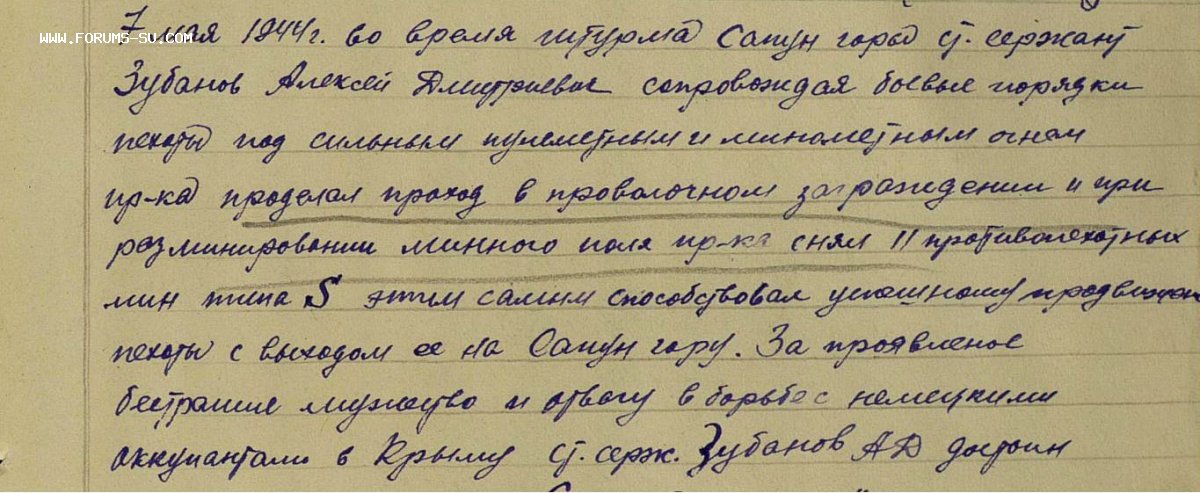 WWW.FORUMS-SU.COM
7 мая 1944г. во время штурма Сапун горы ст. сержант
Зубанов Алексей Дмитриевич сопровождая боевые порядки
пехоты под сильным пулеметным и минометным огнем
пр-ка проделал проход в проволочном заграждении и при
разминировании минного поля пр-ка снял 11 противопехотных
мин типа S этим самым способствовал успешному продвижен
пехоты с выходом ее на Сапун гору. За проявленое
бестрашие мужество и отвагу в борьбе с немецкими
оккупантами в Крыму ст. серж. Зубанов АД достоин